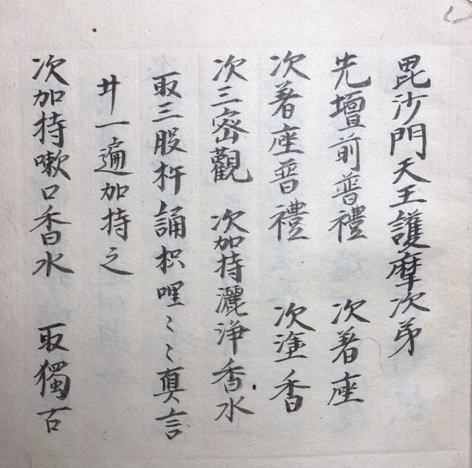 毘沙門天王護摩次弟
先壇前普禮　次著座
次著座普禮　次塗香
次三密觀　次加持灑淨香水
取三股杵誦枳哩〻〻真言
廾一遍加持之
次加持嗽口香水　取獨古